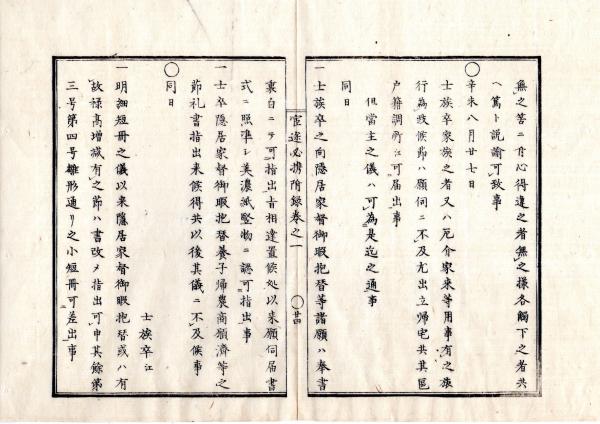 無之筈ニ付心得違之者無之様各觸下之者共
ヘ篤ト説諭可致事
◯
辛未八月廿七日
士族卒家族之者又ハ厄介家来等用事有之旅
行為致候節ハ願伺ニ不及尤出立帰宅共其邑
户籍調所江可届出事
但當主之儀ハ可為是迄之通事
同日
一士族卒之向隱居家督御暇抱替等諸願ハ奉書
宦途必携附録巻之一
◯廿四
裏白ニテ可指出旨相達置候処以来願伺届書
式ニ照準シ美濃紙竪物ニ認可指出事
一士卒隱居家督御暇抱替養子帰農商願濟等之
節礼書指出来候得共以後其儀ニ不及候事
同日
◯
士族卒江
一明細短冊之儀以来隱居家督御暇抱替或ハ有
故禄髙増減有之節ハ書改メ指出可申其餘第
三号第四号雛形通リ之小短冊可差出事